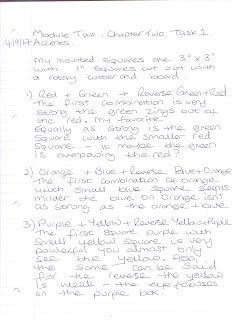 Module Two. Chapter Two. Task 1.
4/9/17 Accenes.
My mounted squares are 3" x 3"
with 1" squares cut out with
a rotary cutter and board.
1) Red + Green + Reverse Green + Red
The first combination is very
strong the green zings out of
the red. My favorite.
Equally as strong is the green
square with the smaller red
square - it maybe the green
is overpowing the red?
2) Orange + Blue + Reverse Blue + Orange
The first combination of orange
with small blue square seems
milder the blue on orange isn't
as strong as the orange + blue
3) Purple + Yellow + Reverse Yellow + Purple
The first square purple with
small yellow square is very
powerful you almost only
see the yellow. Also,
the same can be said
for the reverse the yellow
is weak - the eye focuses
on the purple box.